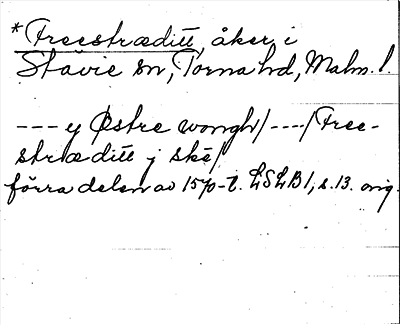 *Freestræditt, åker i
Stävie sn, Torna hd, Malm. l.
--- y Østre wongh/----/Free-
stræditt j skĕ/
förra delen av 1570-t. LSLB 1, s. 13. orig.